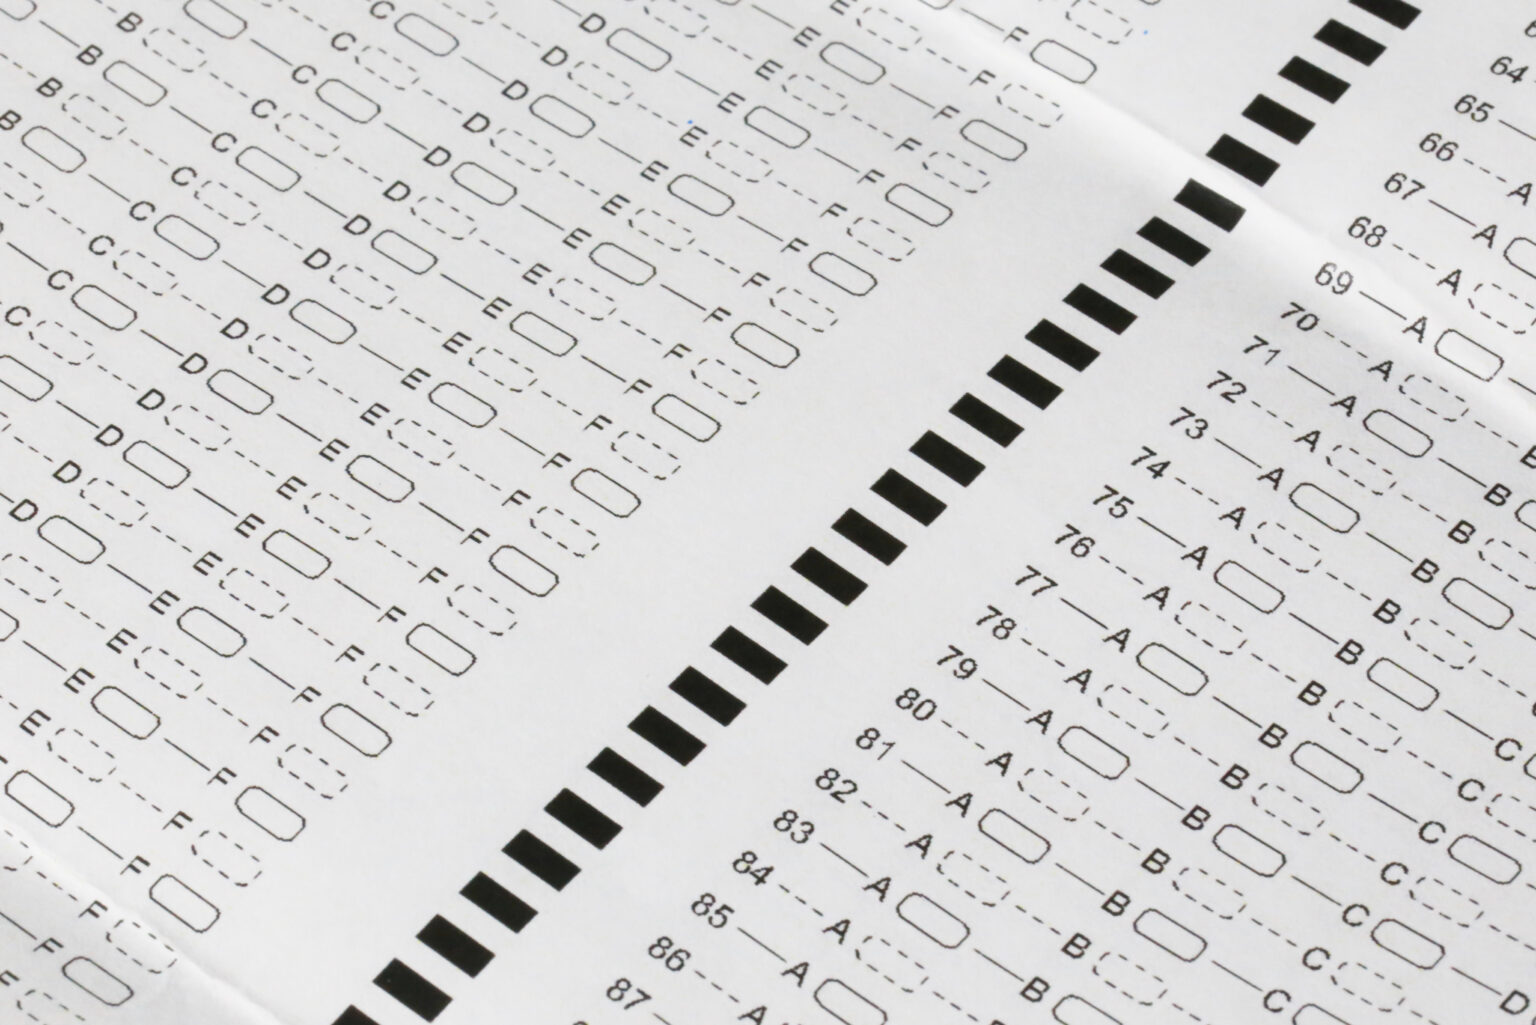 B C D E F
B C D E F
B C D E F
B C D E F
C D E F
C D E F
C D E F
C D E F
C D E F
D E F
D E F
D E F
D E F
E F
E F
E F
F
F
64
65
66 A
67 A
68 A
69 A
70 A
71 A B
72 A B
73 A B
74 A B
75 A B C
76 A B C
77 A B C
78 A B C
79 A B C D
80 A B C
81 A B C
82 A B
83 A B
84 A
85 A
86 A
87